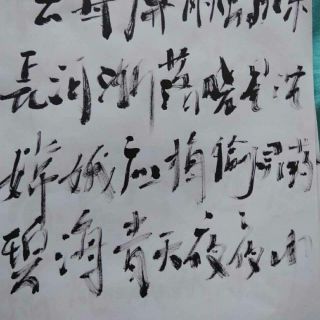 云母屏風烛影深
長河渐落晓星沈
嫦娥应悔偷灵药
碧海青天夜夜心